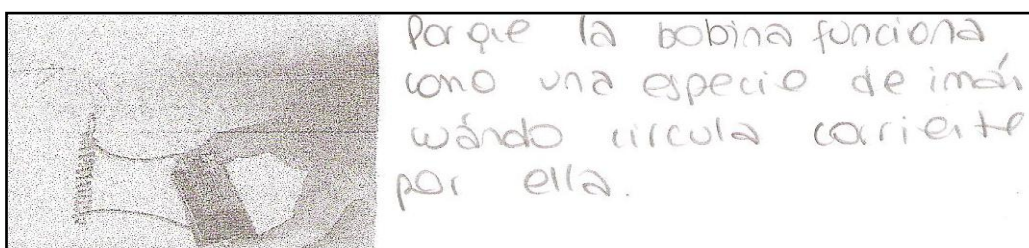 Porque la bobina funciona
como una especie de imán
cuándo circula corriente
por ella.